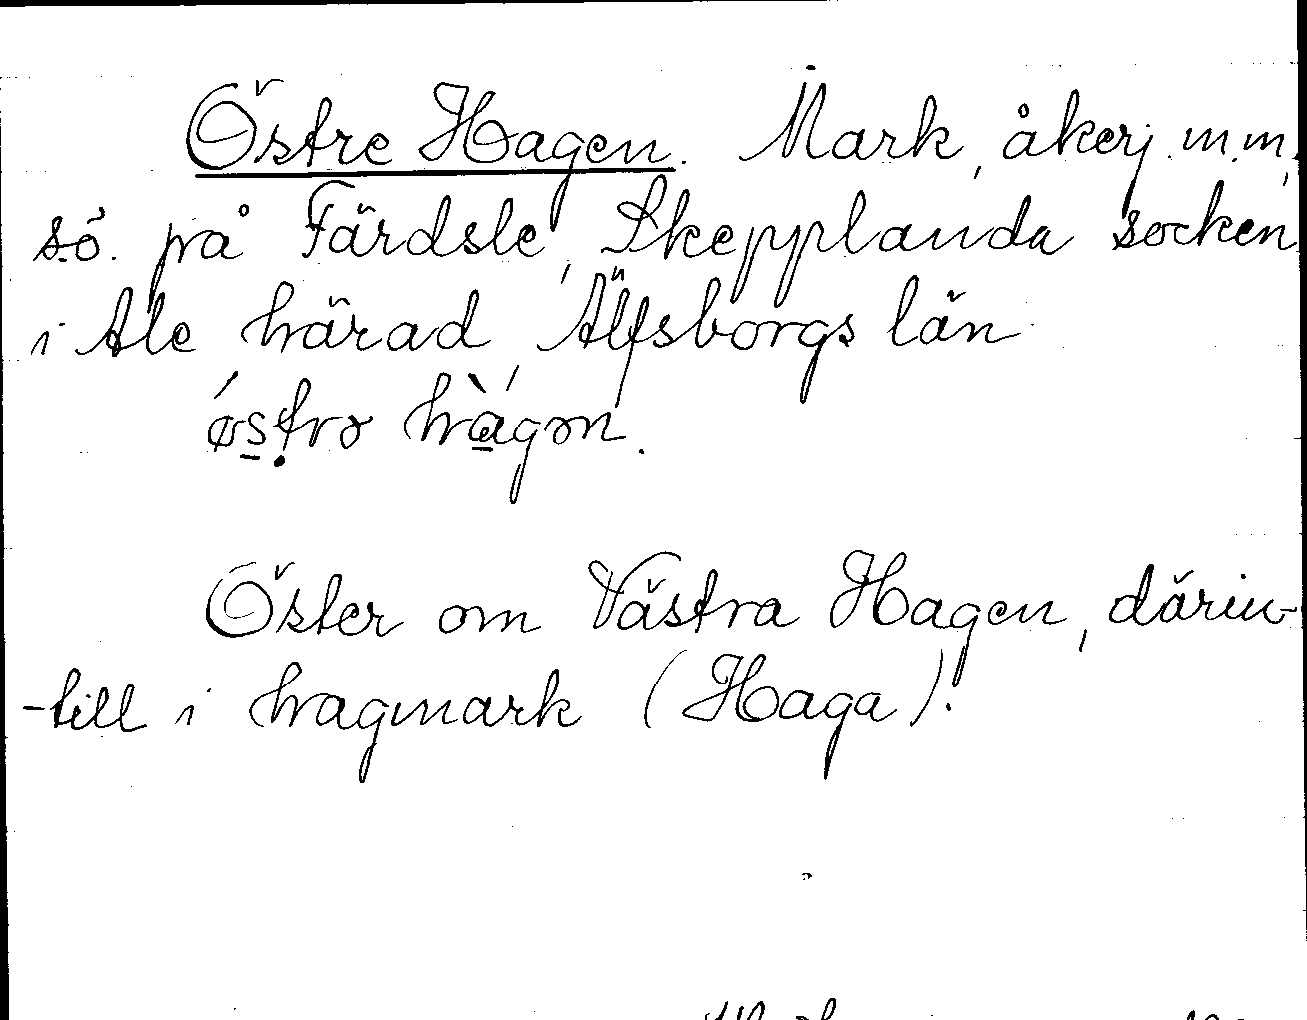 Östre Hagen. Mark, åkerj. m.m,
s.ö. på Färdsle, Skepplanda socken
i Ale härad, Älfsborgs län
østrə hàgən.
Öster om Västra Hagen, därin-
-till i hagmark (Haga).